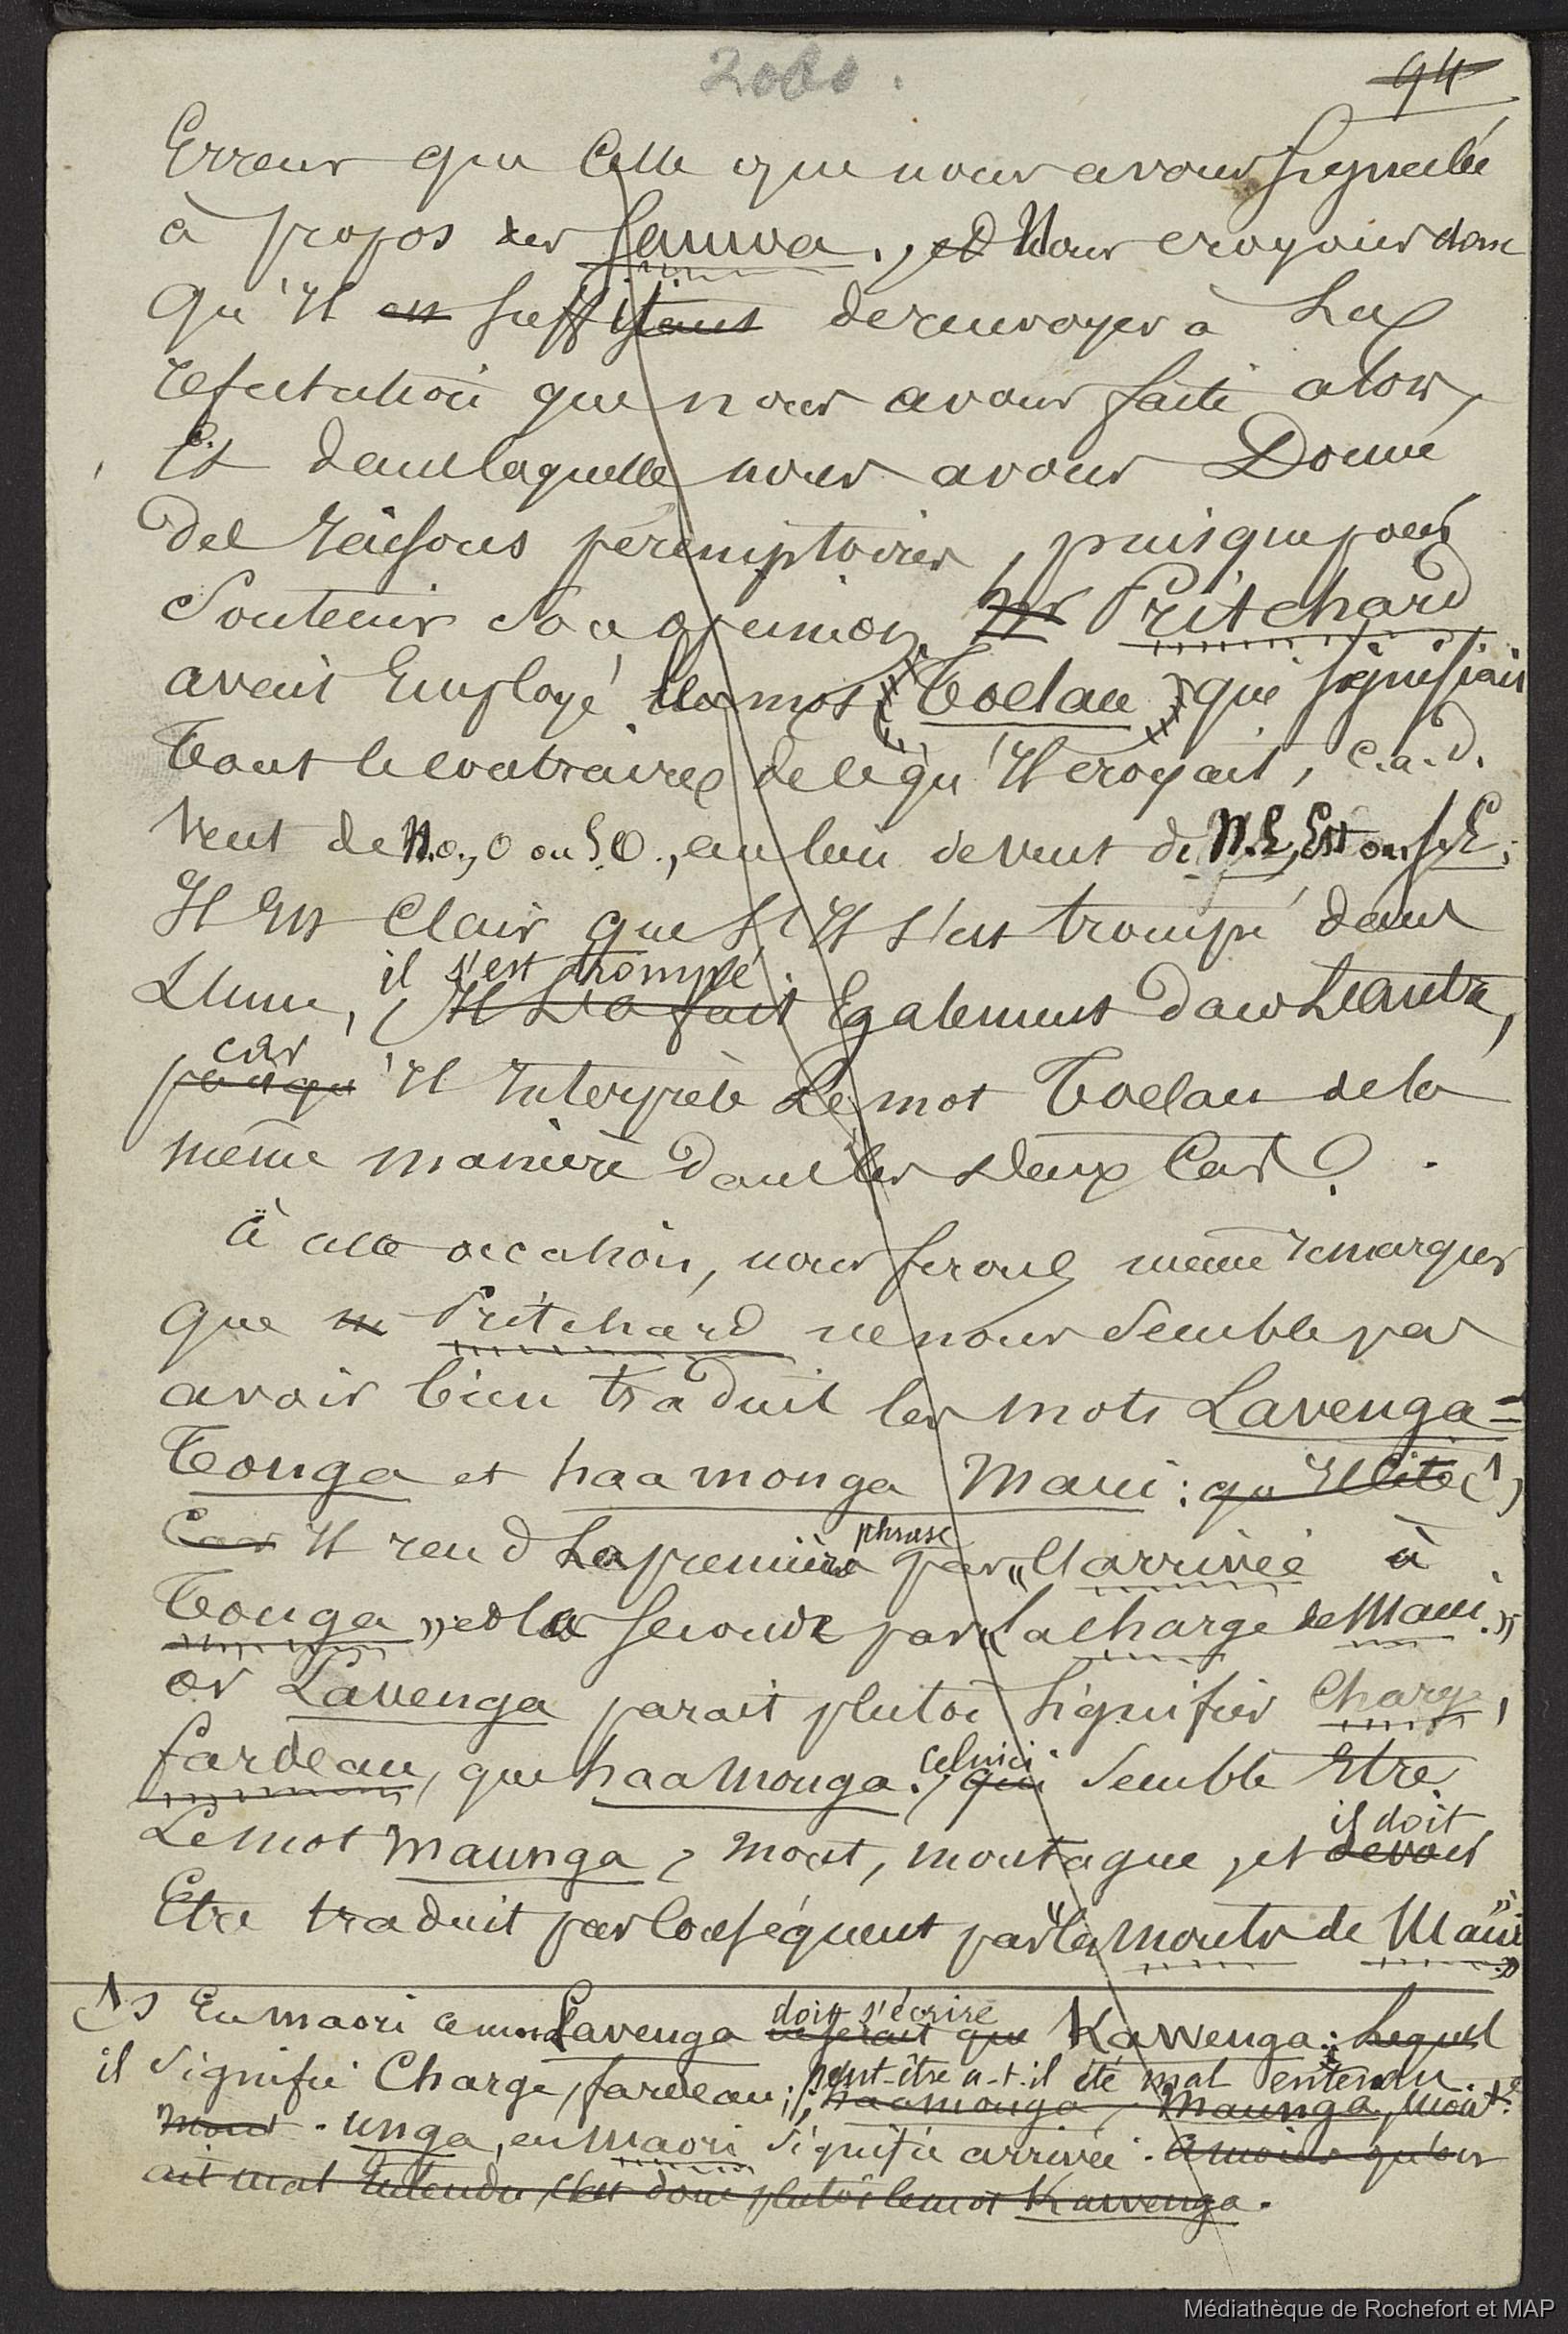 2080.
94
Erreur que celle que nous avons signalée
à propos des Samoa., et Nous croyons donc
qu'Il est suffitsant de renvoyer à La
refutation que nous avons faite alors,
Et dans laquelle nous avons Donné
des raisons péremptoires, puisque pour
Soutenir son opinion Mr Pritchard
avait Employé le mot (Toelau) qui signifiait
tout le contraire de ce qu'Il croyait, c.a.d.
vent de N.o., O ou S.O., au lieu de vent de N.E, Est ou S.E;
Il Est Clair que s'Il s'est trompé dans
L'une, il s'est trompé Il L'a fait Egalement dans L'autre,
car puisqu'Il Interprète Le mot Toelau de la
même manière dans les deux Cas?
à cette occasion, nous ferons même remarquer
que Mr Pritchard ne nous semble pas
avoir bien traduit les mots Lavenga=
Tonga et haamonga Maui: qu'Il cite (1)
Car Il rend La première phrase par "L'arrivée à
Tonga", et la seconde par "La charge de Maui."
or Lavenga parait plutôt signifier Charge,
fardeau, que haamonga. celui ci qui semble Etre
Le mot maunga, mont, montagne, et il doit devait
Etre traduit par conséquent par "les monts de Maui"
(1) En maori ce mot Lavenga doit s'écrire ne serait que Kawenga; Lequel
il signifie Charge, fardeau; peut-être a-t-il été mal entendu. haamonga, Maunga, mont.
mont. Unga, en maori signifie arrivée. A moins qu'on
ait mal Entendu, c'est donc plutôt le mot Kawenga.
Médiathèque de Rochefort et MAP